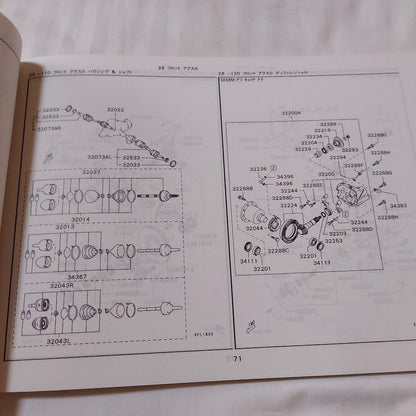 26 -110 フロント アクスル ハウジング & シャフト
26 フロント アクスル
26 -120 フロント アクスル デフアレンシャル
32033
32022
32533
32033
32073AR
32073AL
32533
32033
32037
32014
32013
34367
32043R
32043L
32200A
32289
32214
32234
32293
32288G
32294
32244
32288H
32236
34396
34396
32288B
32288E
32244
32201
32288D
32224
34393
32244
32288D
32044
32203
32288C
32253
34111
32201
32201
34111
71